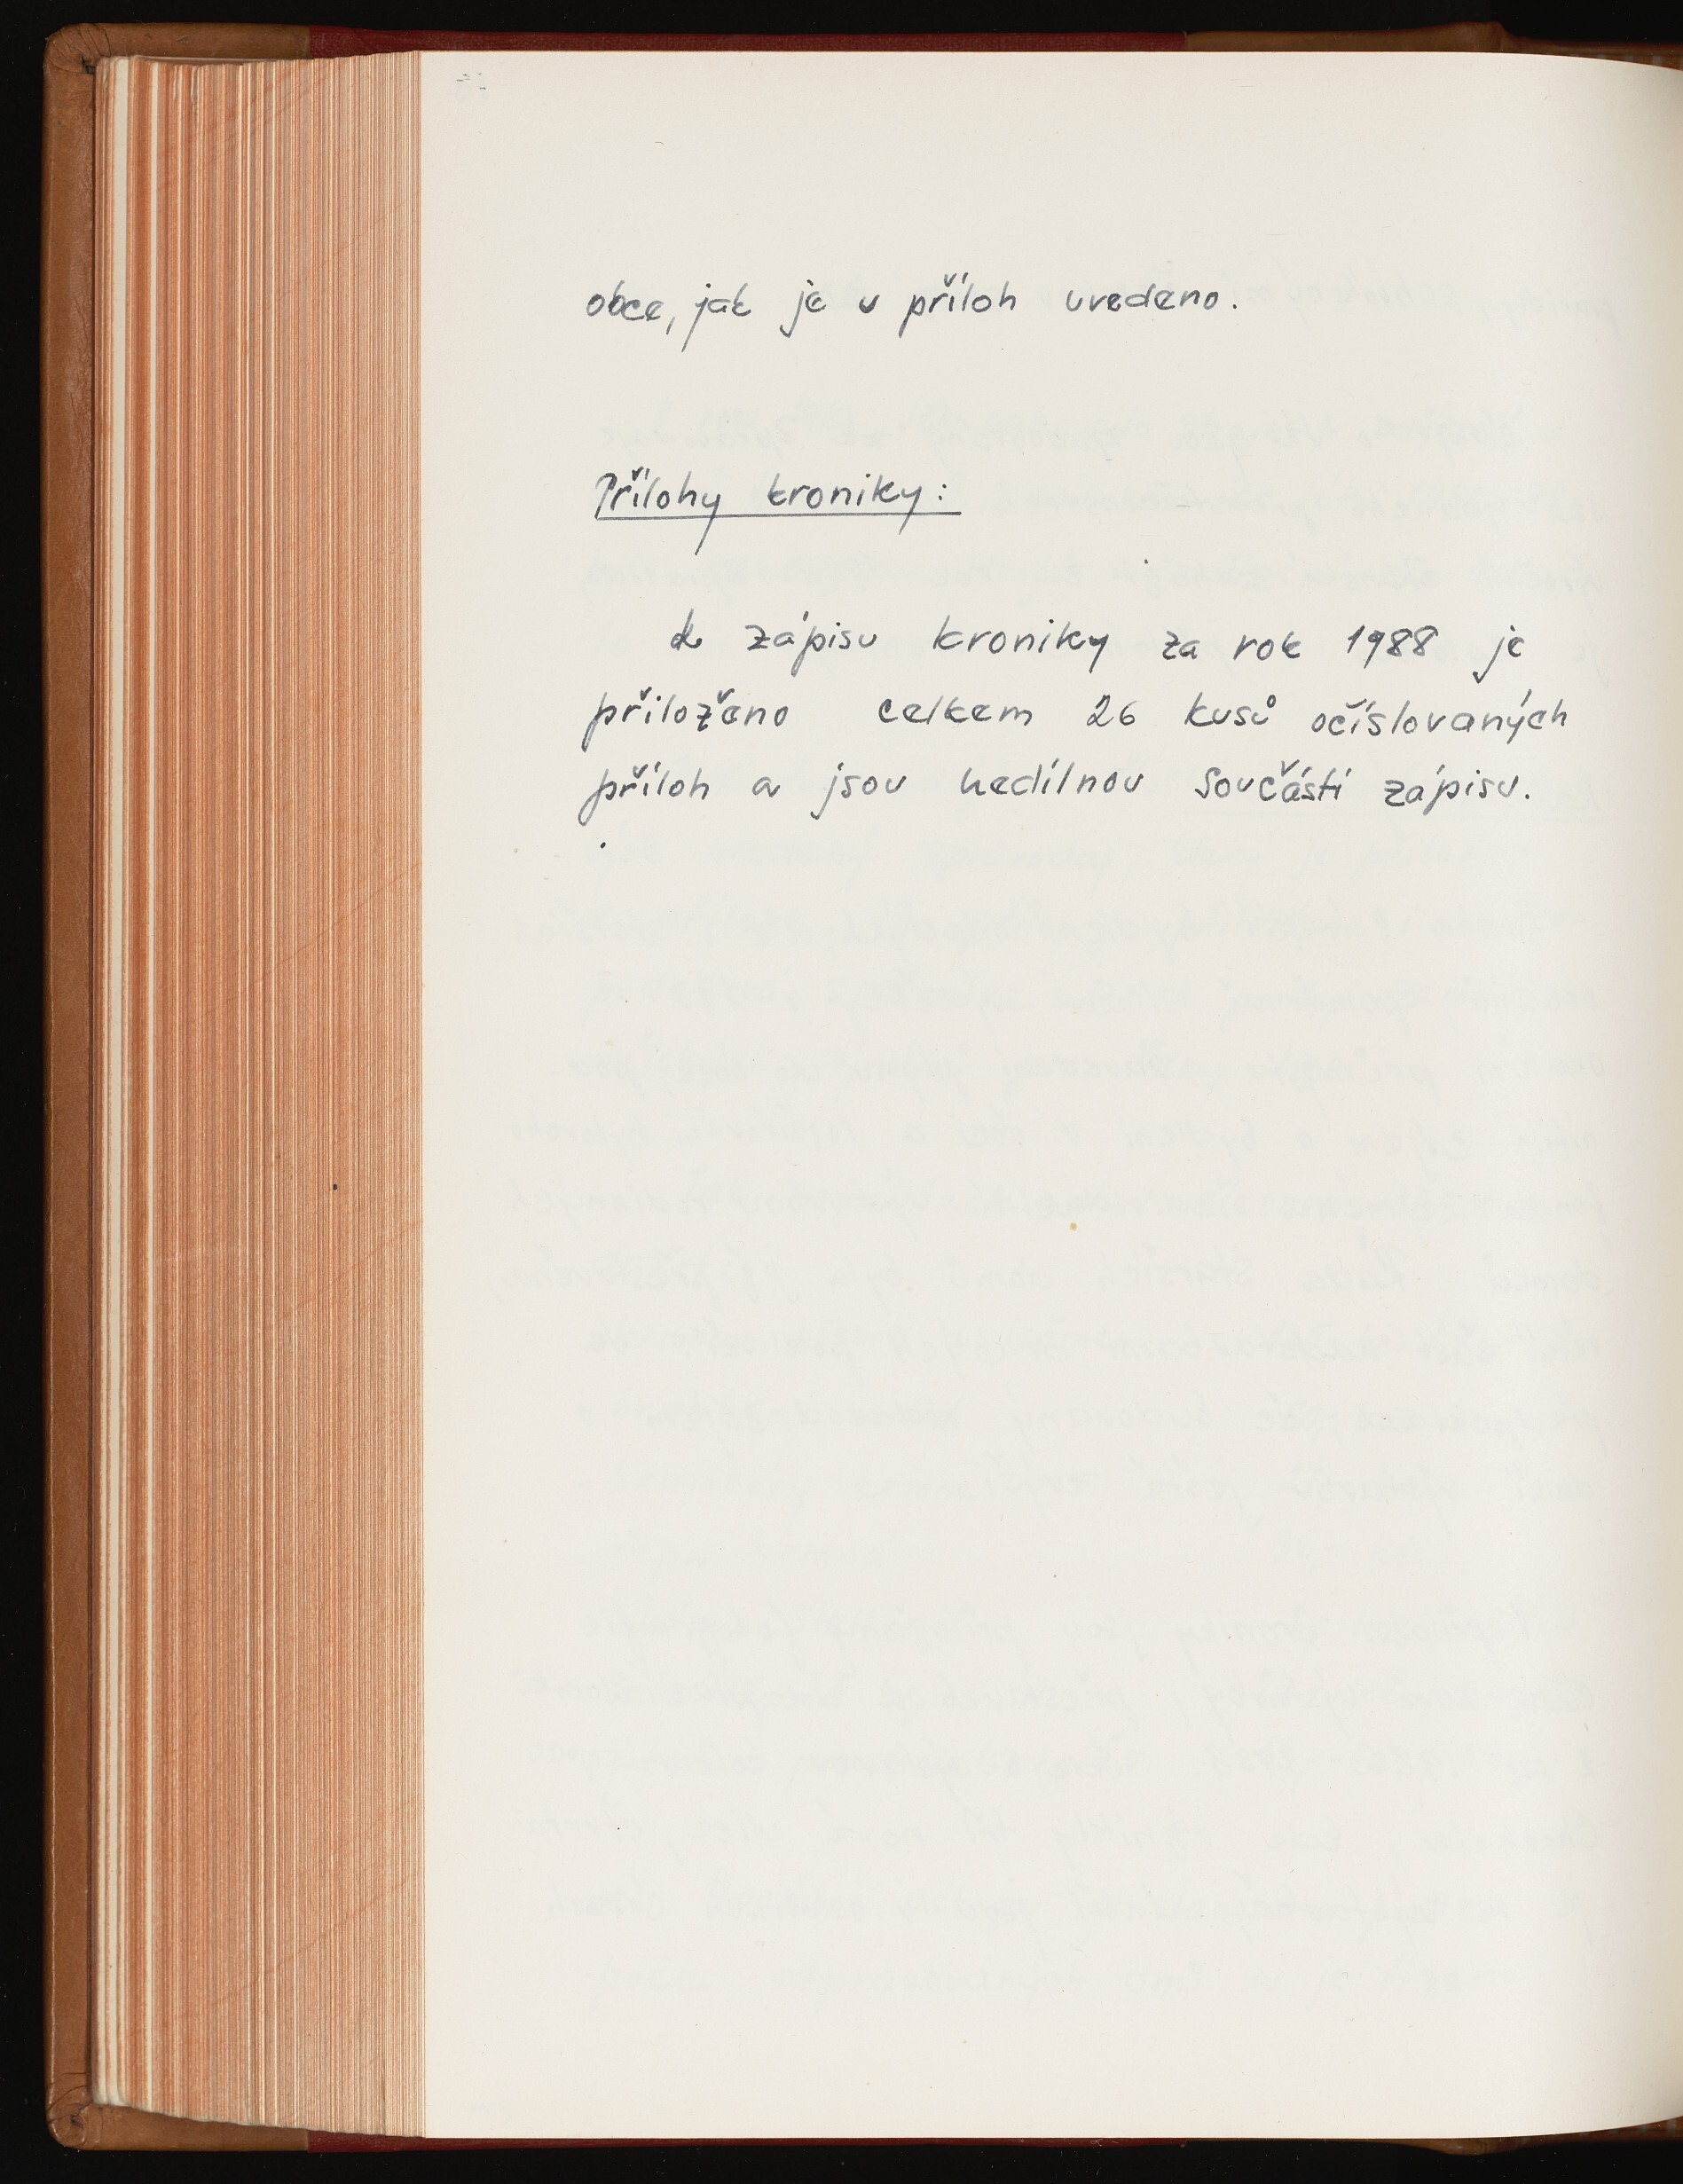 obce, jak je v příloh uvedeno.
Přílohy kroniky:
K zápisu kroniky za rok 1988 je
přiloženo celkem 26 kusů očíslovaných
příloh a jsou nedílnou součástí zápisu.